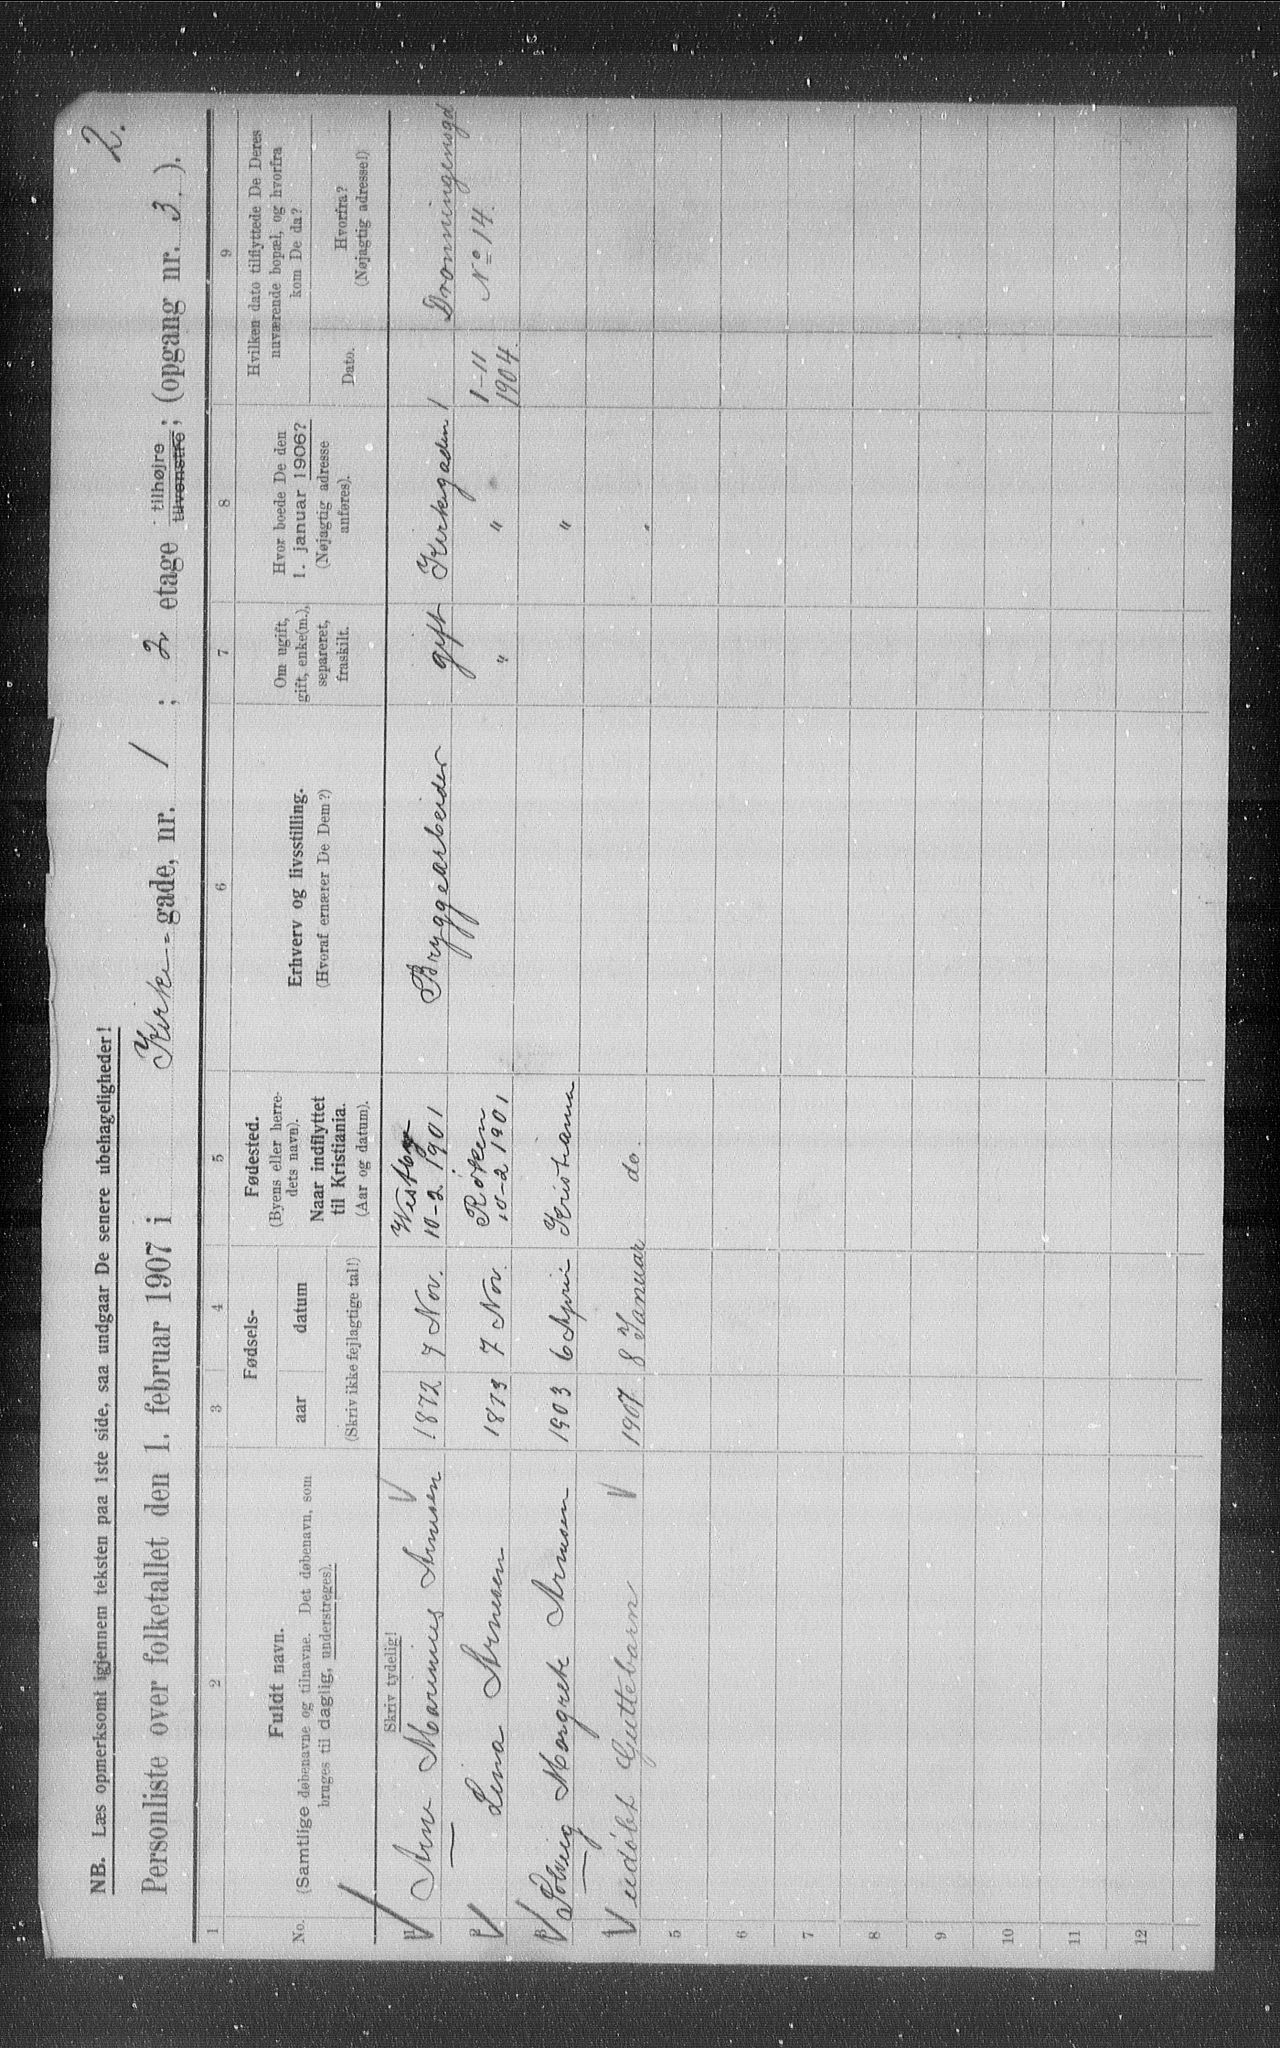 2.
NB. Læs opmerksomt igjennem teksten paa 1ste side, saa undgaar De senere ubehageligheder!
Personliste over folketallet den 1. februar 1907 i Kirke-gade, nr. 1 ; 2 etage tilhøjre tilvenstre; (opgang nr. 3. ).
1 2 3 4 5 6 7 8 9
No.
Fuldt navn.
(Samtlige døbenavne og tilnavne. Det døbenavn, som
bruges til daglig, understreges).
Fødsels-
aar datum
(Skriv ikke fejlagtige tal!)
Fødested.
(Byens eller herre-
dets navn).
Naar indflyttet
til Kristiania.
(Aar og datum).
Erhverv og livsstilling.
(Hvoraf ernærer De Dem?)
Om ugift,
gift, enke(m.),
separeret,
fraskilt.
Hvor boede De den
1. januar 1906?
(Nøjagtig adresse
anføres).
Hvilken dato tilflyttede De Deres
nuværende bopæl, og hvorfra
kom De da?
Dato.
Hvorfra?
(Nøjagtig adresse!)
Skriv tydelig!
1 Arne Marinius Arnesen 1872 7 Nov. Westby 10-2 1901 Bryggearbeider gift Kirkegaden 1 Dronningensgd
2 Lina Arnesen 1873 7 Nov. Røken 10-2 1901 " " 1-11 1904. No 14.
3 Solveig Margrete Arnesen 1903 6 April Kristiania "
4 Uudøbt Guttebarn 1907 8 Januar do. "
5
6
7
8
9
10
11
12